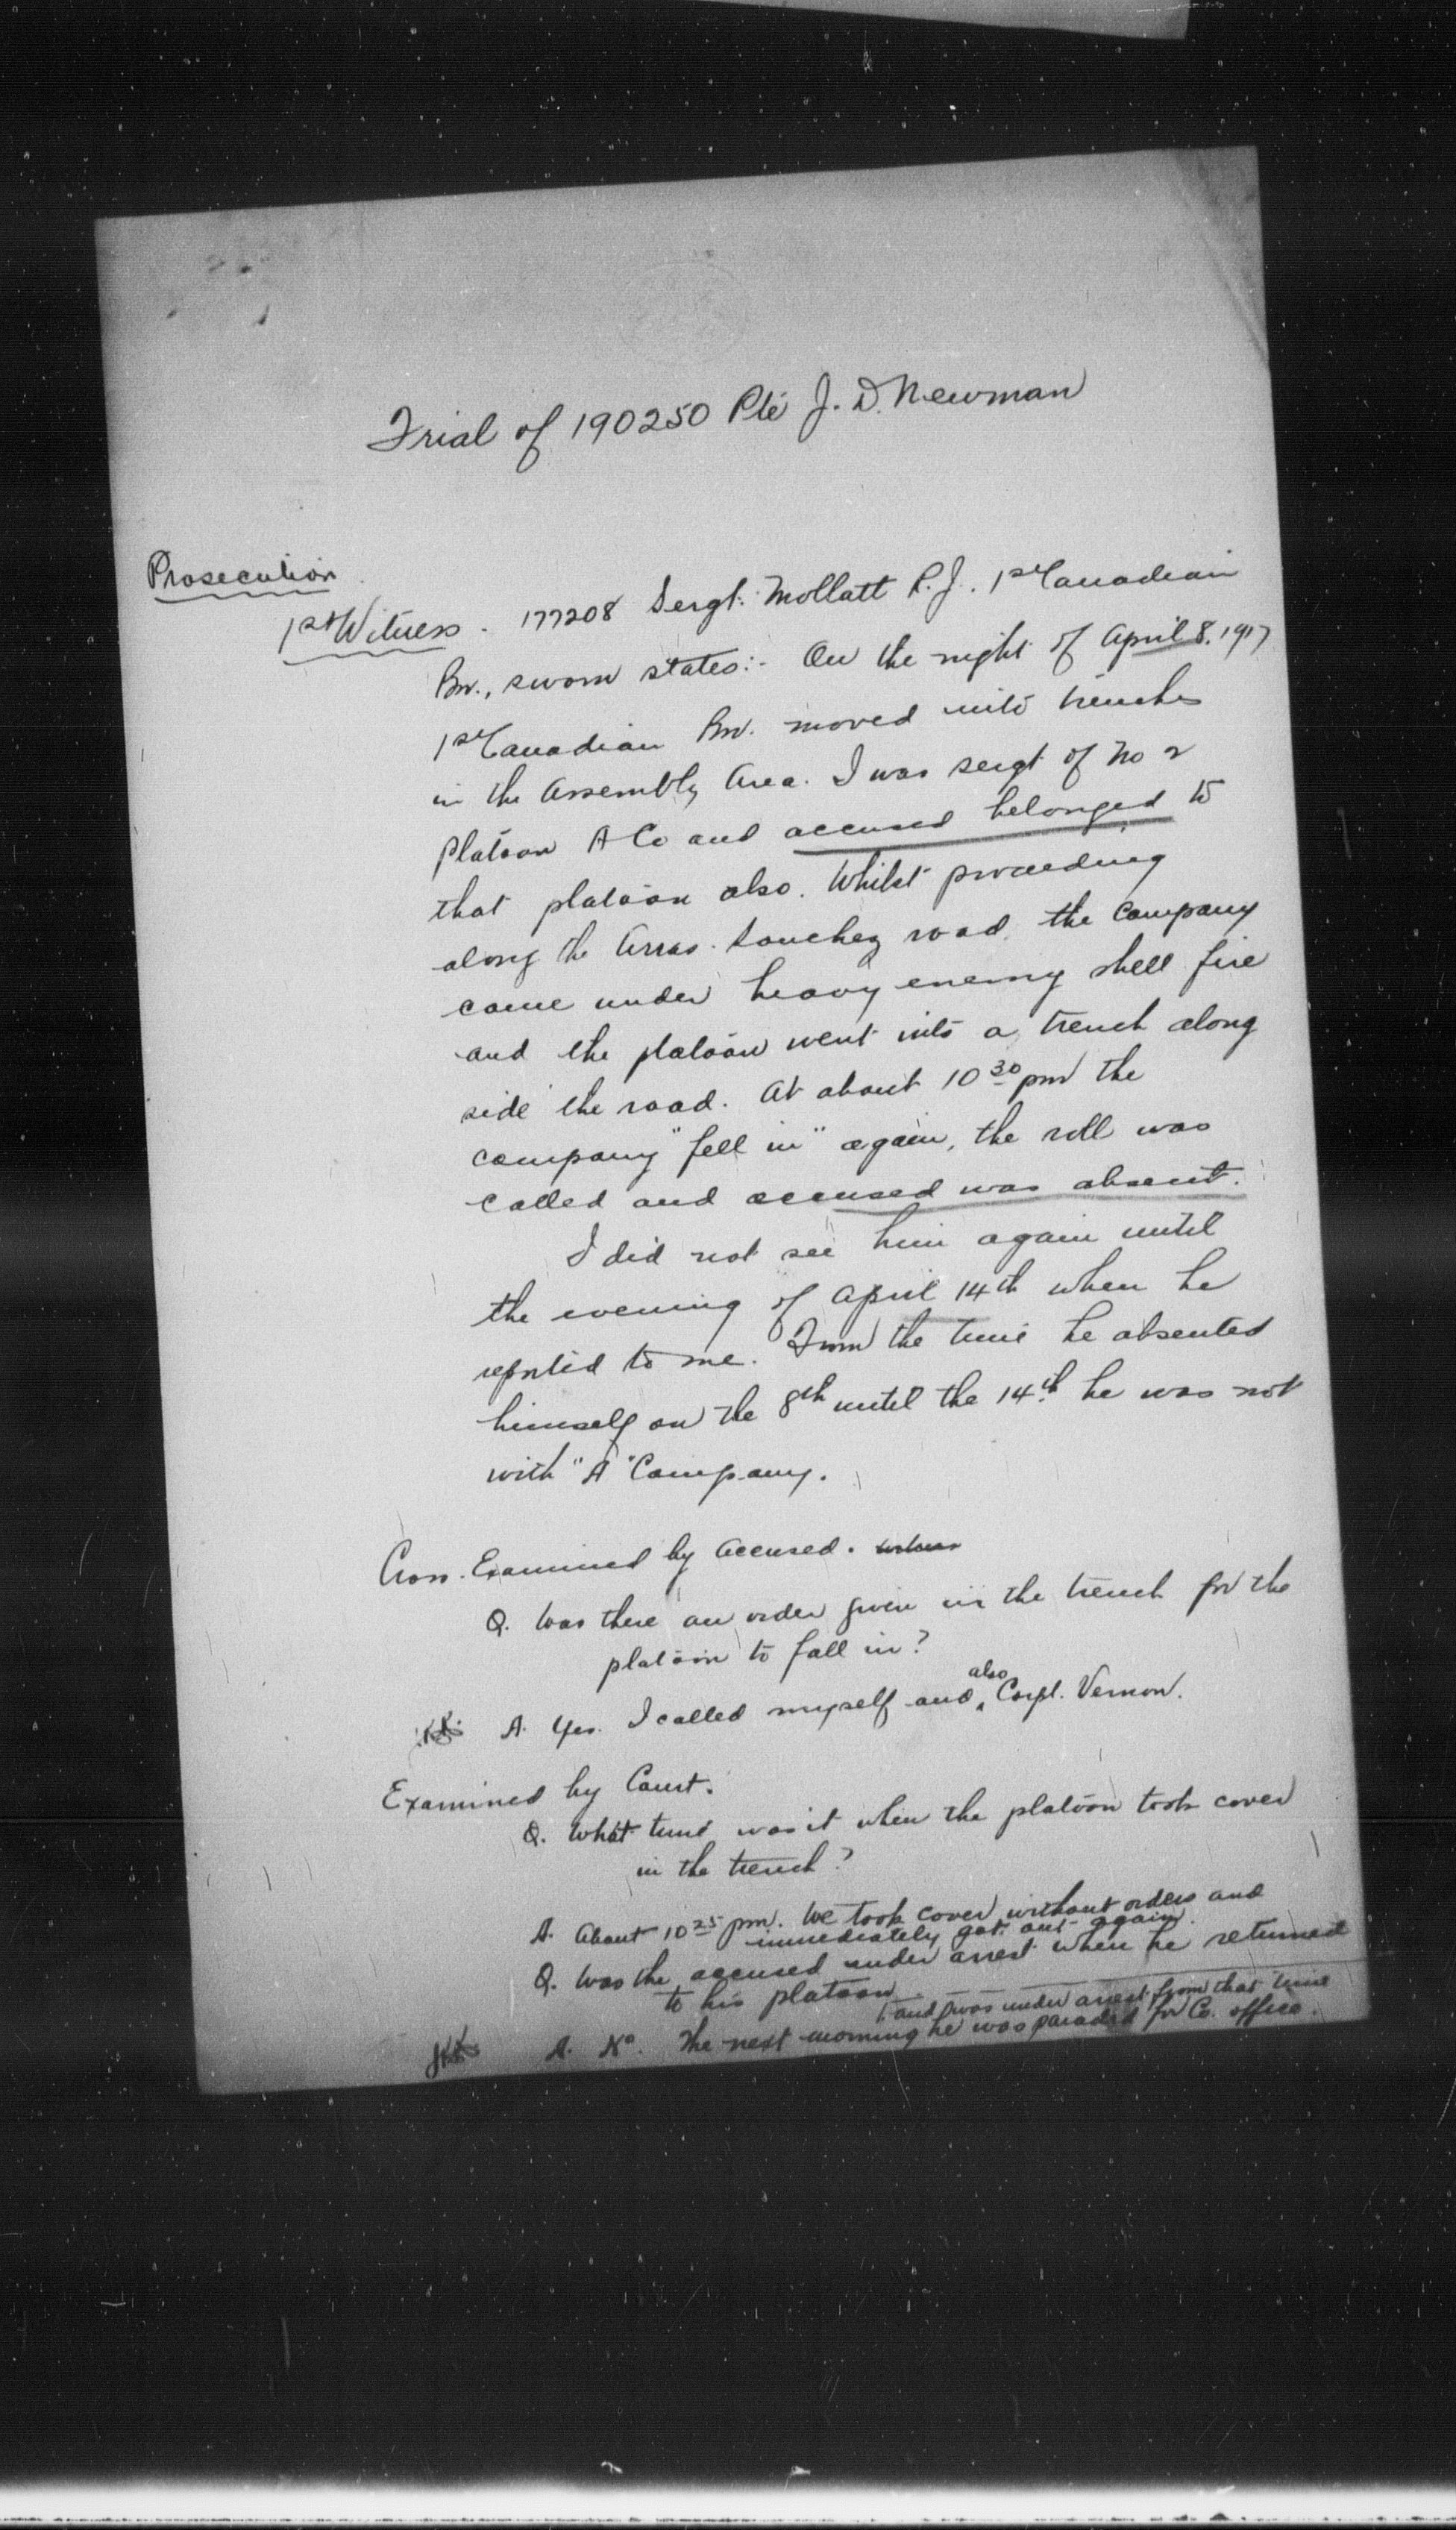 Trial of 190250 Pte J. D. Newman
Prosecution
1st Witness. 177208 Sergt. Mollatt R. J. 1st Canadian
Bn., sworn states:- On the night of April 8. 1917
1st Canadian Bn. moved into trenches
in the Assembly Area. I was sergt of No 2
platoon A Co and accused belonged to
that platoon also. Whilst proceeding
along the Arras-Souchez road, the company
came under heavy enemy shell fire
and the platoon went into a trench along
side the road. At about 10 30 pm the
company "fell in" again, the roll was
called and accused was absent.
I did not see him again until
the evening of April 14th when he
reported to me. From the time he absented
himself on the 8th until the 14th he was not
with "A" Company.
Cross-Examined by Accused.
Q. Was there an order given in the trench for the
platoon to fall in?
A. Yes. I called myself and also Corpl. Vernon.
Examined by Court.
Q. What time was it when the platoon took cover
in the trench?
A. About 10 25 pm. We took cover without orders and
immediately got out again.
Q. Was the accused under arrest when he returned
to his platoon
and was under arrest from that time
A. No. The next morning he was paraded for Co. office.